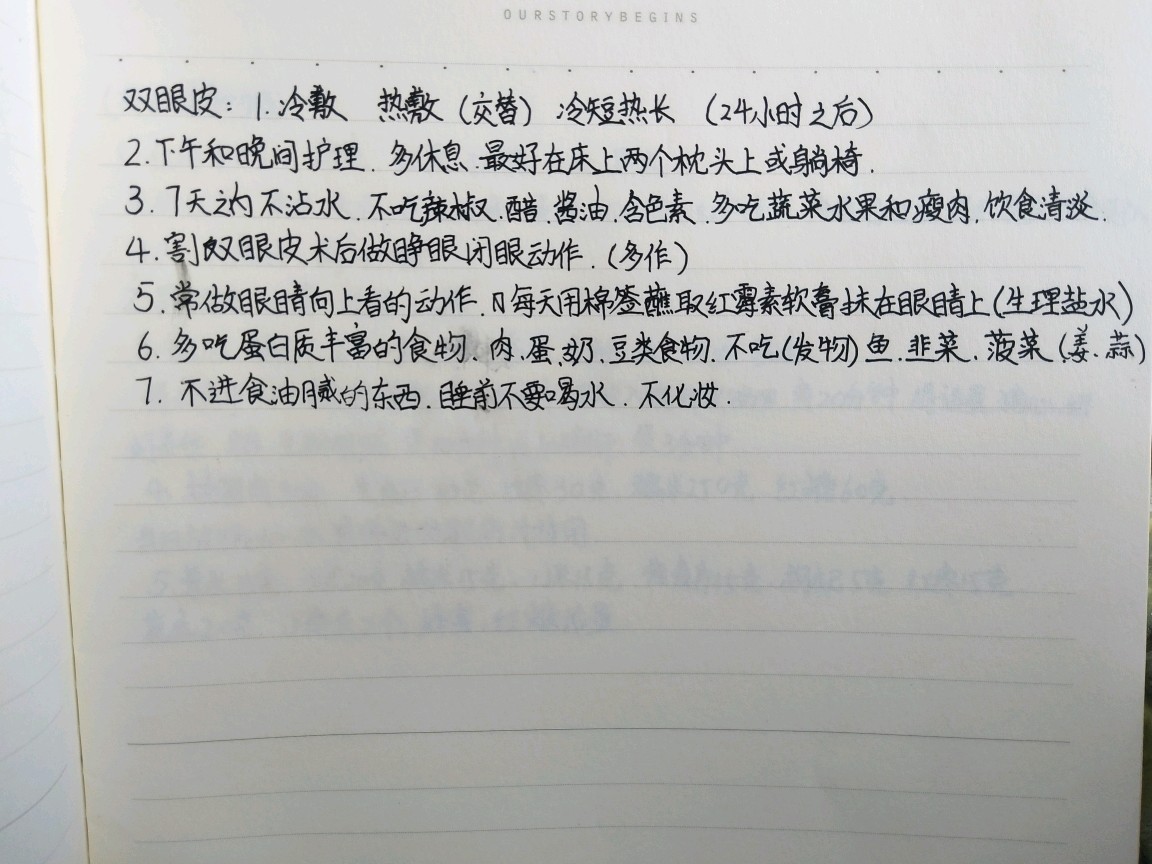 OURSTORYBEGINS
双眼皮：1.冷敷 热敷（交替） 冷短热长 （24小时之后）
2.下午和晚间护理.多休息.最好在床上两个枕头上或躺椅.
3.7天之内不沾水.不吃辣椒.醋.酱油.含色素.多吃蔬菜水果和瘦肉.饮食清淡.
4.割双眼皮术后做睁眼闭眼动作.(多作)
5.常做眼睛向上看的动作.每天用棉签蘸取红霉素软膏抹在眼睛上(生理盐水)
6.多吃蛋白质丰富的食物.肉.蛋.奶.豆类食物.不吃(发物)鱼.韭菜.菠菜(姜.蒜)
7.不进食油腻的东西.睡前不要喝水.不化妆.